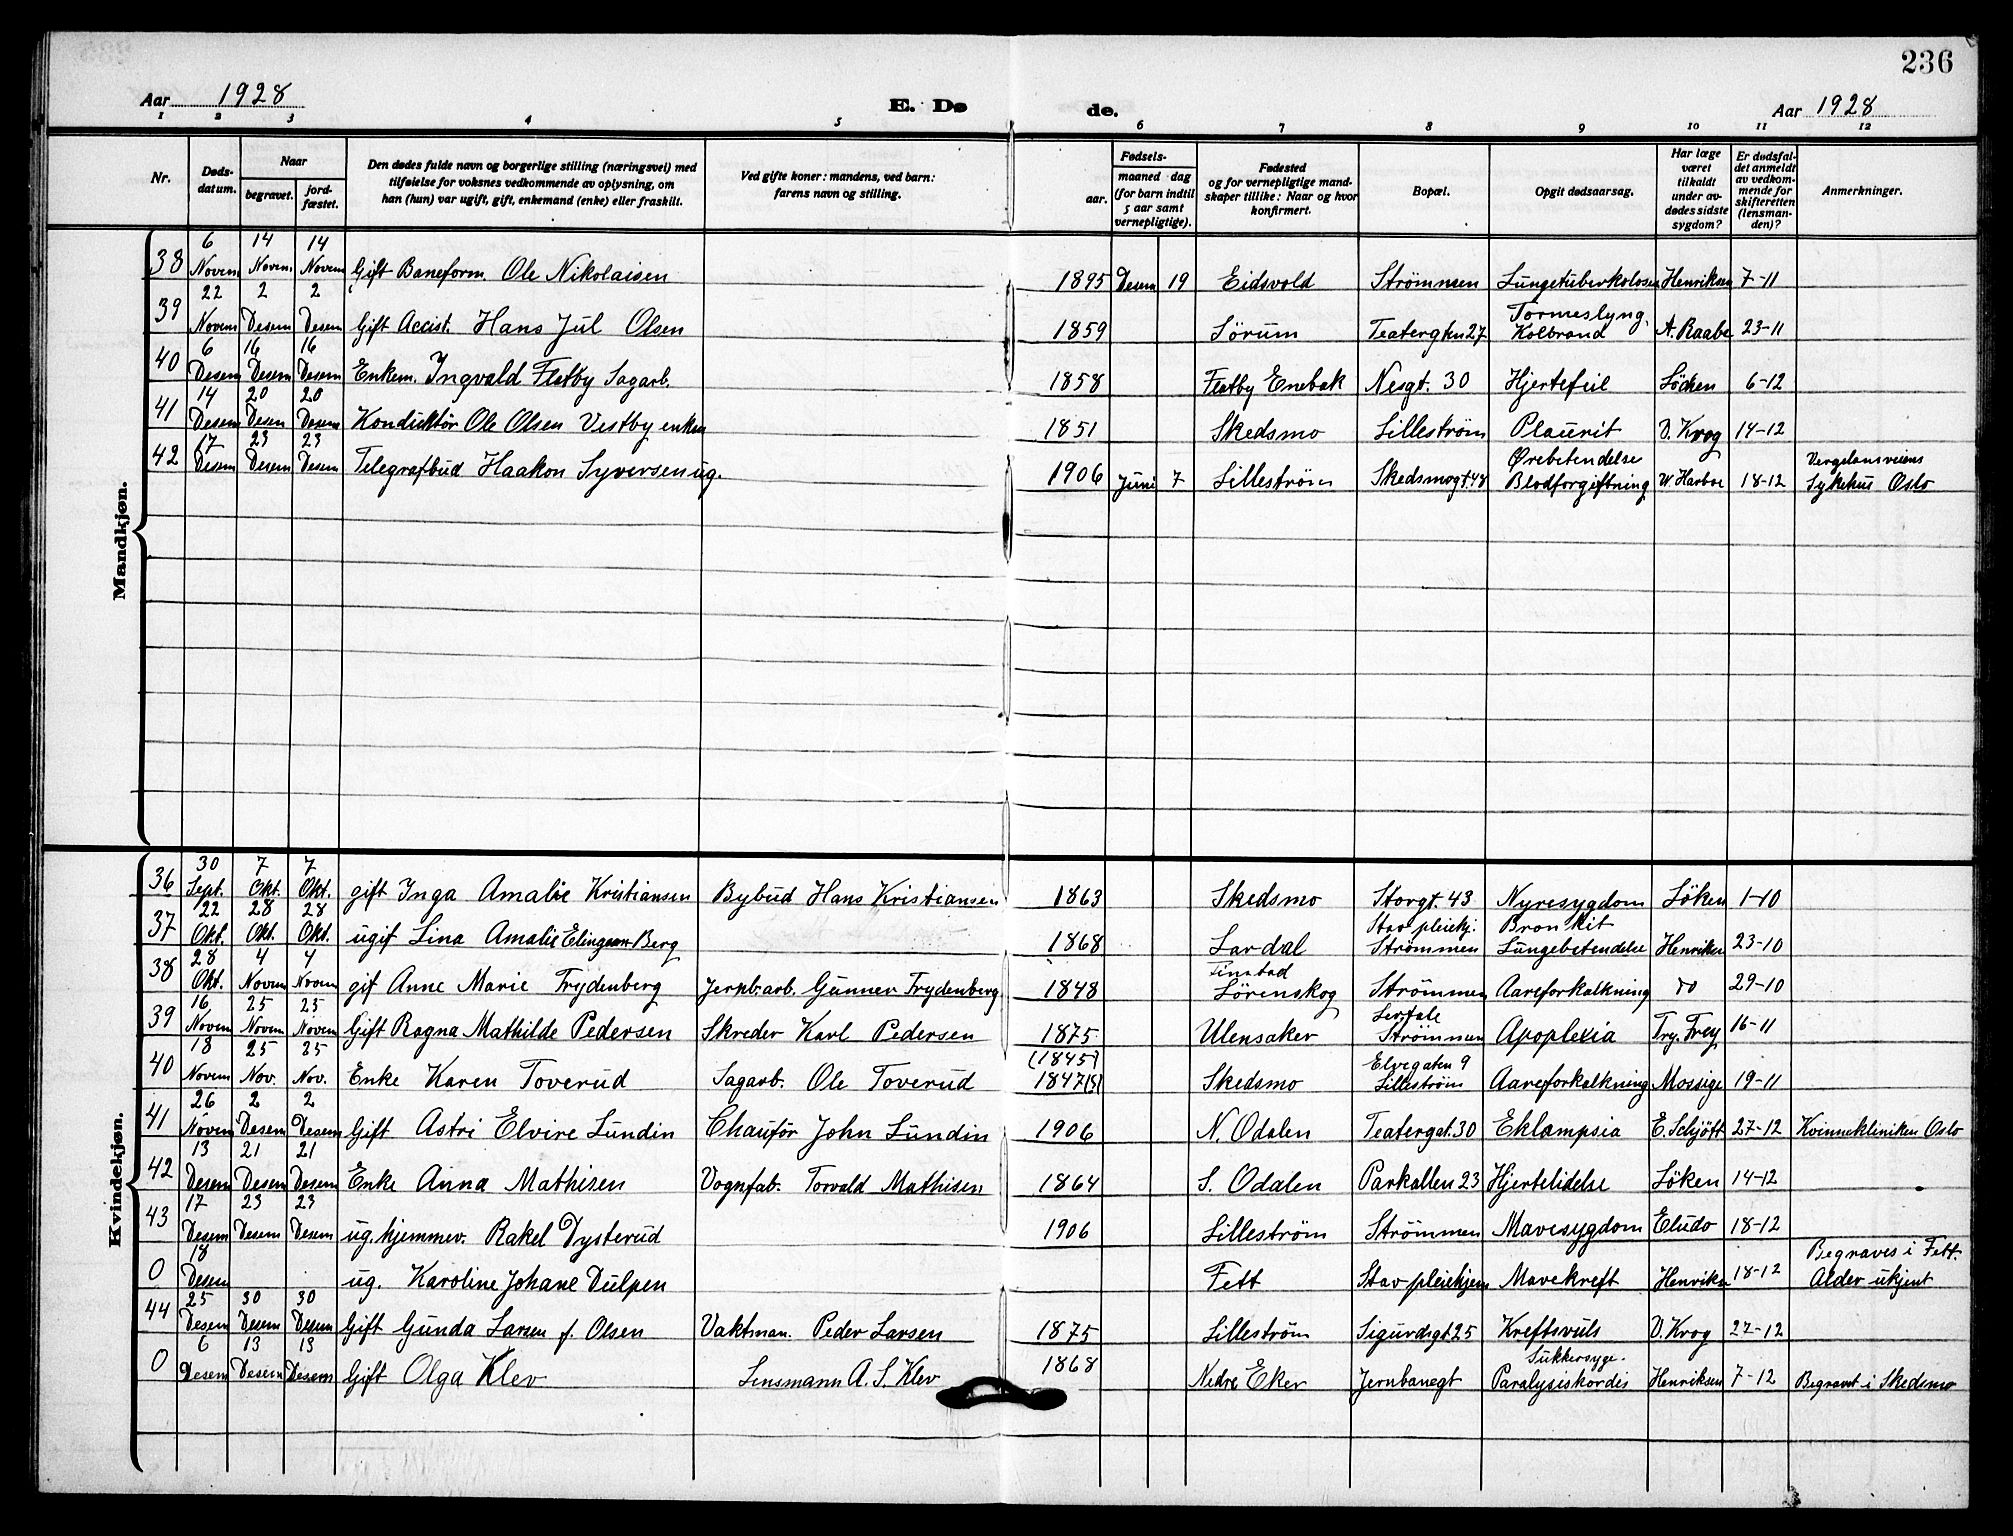 236
Aar 1928 E. Dø de. Aar 1928
1 2 3 4 5 6 7 8 9 10 11 12
Nr. | Døds-datum. | Naar begravet. | jord-fæstet. | Den dødes fulde navn og borgerlige stilling (næringsvei) med tilføielse for voksnes vedkommende av oplysning, om han (hun) var ugift, gift, enkemand (enke) eller fraskilt. | Ved gifte koner: mandens, ved barn: farens navn og stilling. | Fødsels- aar. | maaned dag (for barn indtil 5 aar samt vernepligtige). | Fødested og for vernepligtige mand-skaper tillike: Naar og hvor konfirmert. | Bopæl. | Opgit dødsaarsag. | Har læge været tilkaldt under av-dødes sidste sygdom? | Er dødsfal-det anmeldt av vedkom-mende for skifteretten (lensman-den)? | Anmerkninger.
Mandkjøn.
38 | 6 Novem | 14 Novem | 14 Novem | Gift Baneform. Ole Nikolaisen | 1895 | Desem | 19 | Eidsvold | Strömmen | Lungetuberkolose | Henriksen | 7-11
39 | 22 Novem | 2 Desem | 2 Desem | Gift Accist. Hans Jul Olsen | 1859 | Sörum | Teatergten 27 | Tormeslyng. Kolbrand | A. Raabe | 23-11
40 | 6 Desem | 16 Desem | 16 Desem | Enkem. Ingvald Flatby Sagarb. | 1858 | Flatby Enebak | Nesgt. 30 | Hjertefeil | Söken | 6-12
41 | 14 Desem | 20 Desem | 20 Desem | Konduktör Ole Olsen Vestby enkem | 1851 | Skedsmo | Lilleström | Plaurit | D. Krog | 14-12
42 | 17 Desem | 23 Desem | 23 Desem | Telegrafbud Haakon Syversen ug. | 1906 | Juni | 7 | Lilleström | Skedsmogt. 48 | Ørebetendelse Blodforgiftning | W. Harboe | 18-12 | Vergelansveiens Sykehus Oslo
Kvindekjøn.
36 | 30 Sept. | 7 Okt. | 7 Okt. | gift Inga Amalie Kristiansen | Bybud Hans Kristiansen | 1863 | Skedsmo | Storgt. 43 | Nyresygdom | Löken | 1-10
37 | 22 Okt. | 28 Okt. | 28 Okt. | ugif Lina Amalie Berg | 1868 | Lardal | Stav pleiehj. Strömmen | Bronkit Lungebetendelse | Henriksen | 23-10
38 | 28 Okt. | 4 Novem | 4 Novem | gif Anne Marie Frydenberg | Jernb.arb. Gunner Frydenberg | 1848 | Finstad Lörenskog | Strömmen | Aareforkalkning | do | 29-10
39 | 16 Novem | 25 Novem | 25 Novem | Gift Ragna Mathilde Pedersen | Skreder Karl Pedersen | 1875 | Ulensaker | Strömmen | Apoplexia | Try. Frey | 16-11
40 | 18 Novem | 25 Nov. | 25 Nov. | Enke Karen Toverud | Sagarb. Ole Toverud | (1845) 1847(5) | Skedsmo | Elvegaten 9 Lilleström | Aareforkalkning | Mossige | 19-11
41 | 26 Novem | 2 Desem | 2 Desem | Gift Astri Elvire Lundin | Chauför John Lundin | 1906 | N. Odalen | Teatergat. 30 | Eklampsia | E. Schjött | 27-12 | Kvinnekliniken Oslo
42 | 13 Desem | 21 Desem | 21 Desem | Enke Anna Mathisen | Vognfab. Torvald Mathisen | 1864 | S. Odalen | Parkallen 23 | Hjertelidelse | Löken | 14-12
43 | 17 Desem | 23 Desem | 23 Desem | ug. hjemmev. Rakel Dysterud | 1906 | Lilleström | Strömmen | Mavesygdom | 18-12
0 | 18 Desem | ug. Karoline Johane Dulpen | Fett | Stav pleiehjem | Mavekreft | Henriksen | 18-12 | Begraves i Fett. Alder ukjent
44 | 25 Desem | 30 Desem | 30 Desem | Gift Gunda Larsen f. Olsen | Vaktman. Peder Larsen | 1875 | Lilleström | Sigurdsgt. 25 | Kreftsvuls | D. Krog | 27-12
0 | 6 Desem | 13 Desem | 13 Desem | Gift Olga Klev | Lensmann A. S. Klev | 1868 | Nedre Eker | Jernbanegt | Sukkersyge. Paralysiskordis | Henriksen | 7-12 | Begravet i Skedsmo